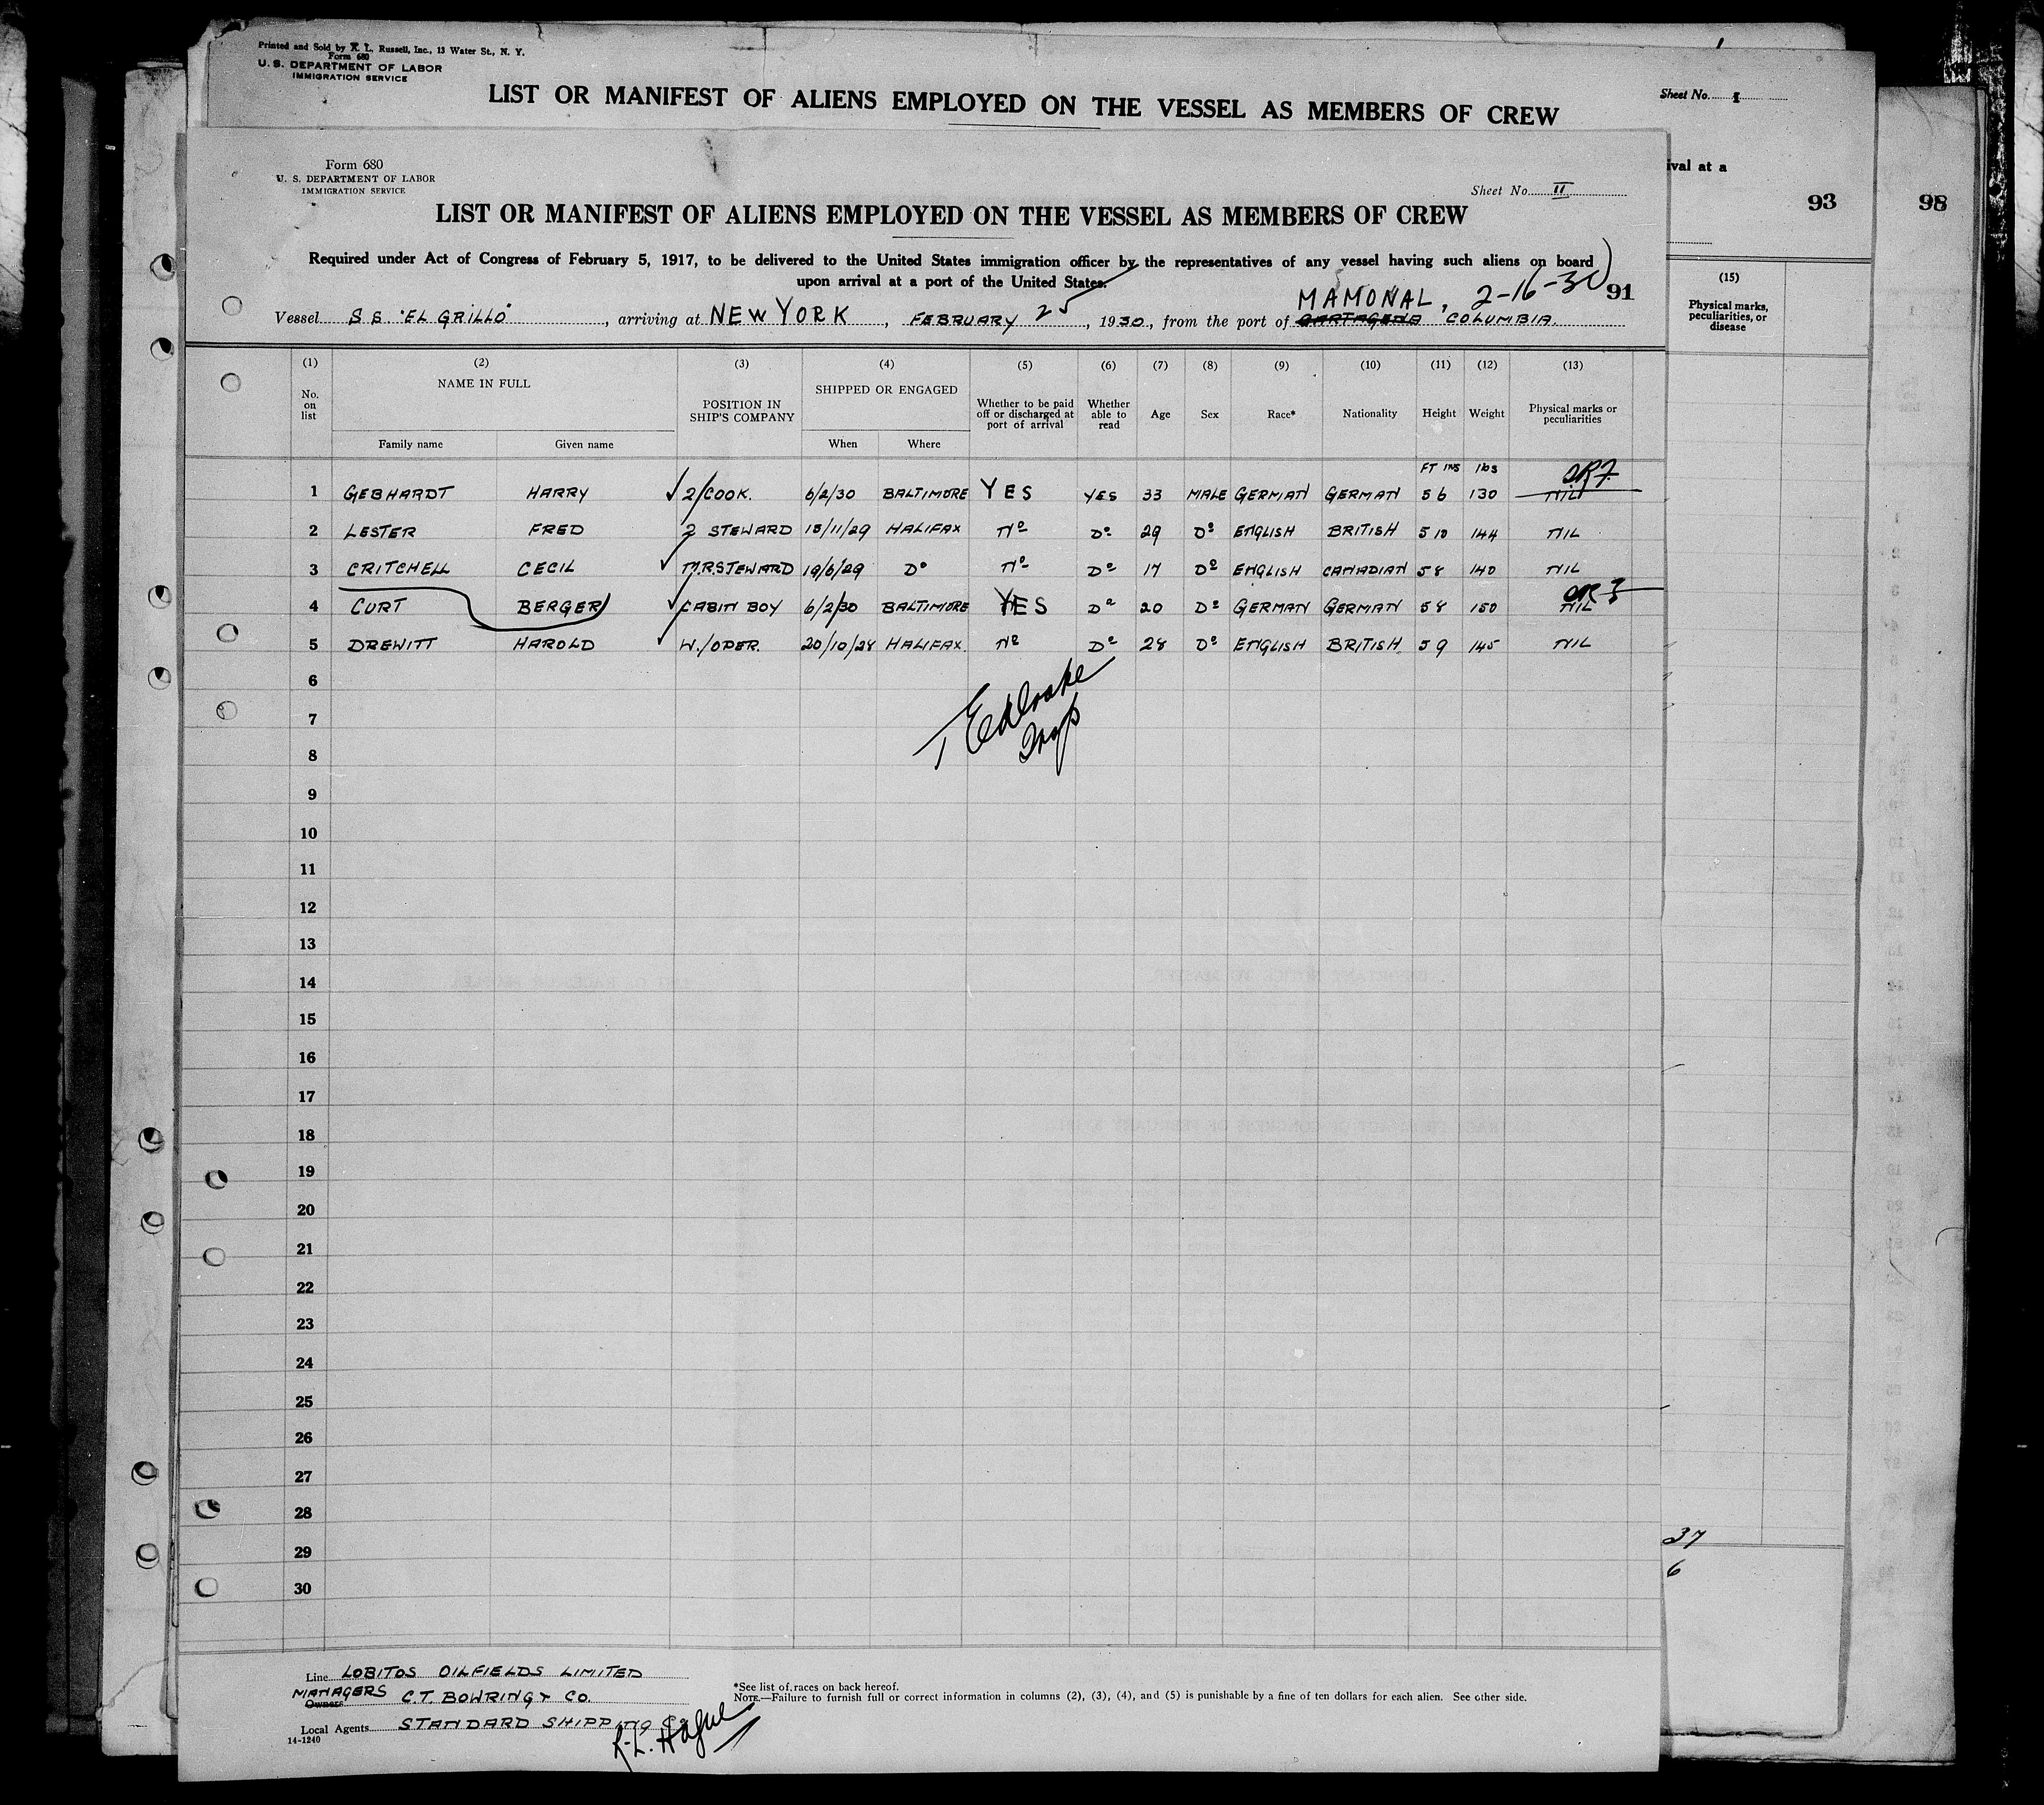 Printed and Sold by R. L. Russell, Inc., 13 Water St., N. Y.
Form 680
U. S. DEPARTMENT OF LABOR
IMMIGRATION SERVICE
LIST OR MANIFEST OF ALIENS EMPLOYED ON THE VESSEL AS MEMBERS OF CREW
Sheet No. 1
ival at a
93
98
(15)
Physical marks,
peculiarities, or
disease
Form 680
U. S. DEPARTMENT OF LABOR
IMMIGRATION SERVICE
Sheet No. II
LIST OR MANIFEST OF ALIENS EMPLOYED ON THE VESSEL AS MEMBERS OF CREW
Required under Act of Congress of February 5, 1917, to be delivered to the United States immigration officer by the representatives of any vessel having such aliens on board
upon arrival at a port of the United States.
MAMONAL, 2-16-30 91
Vessel S S "EL GRILLO", arriving at NEW YORK, FEBRUARY 25, 1930, from the port of CARTAGENA COLUMBIA.
(1) (2) (3) (4) (5) (6) (7) (8) (9) (10) (11) (12) (13)
No. on list NAME IN FULL POSITION IN SHIP'S COMPANY SHIPPED OR ENGAGED Whether to be paid off or discharged at port of arrival Whether able to read Age Sex Race* Nationality Height Weight Physical marks or peculiarities
Family name Given name When Where
FT INS lbs
1 GEBHARDT HARRY 2/COOK. 6/2/30 BALTIMORE YES YES 33 MALE GERMAN GERMAN 5 6 130 NIL
2 LESTER FRED 2 STEWARD 15/11/29 HALIFAX No Do 29 Do ENGLISH BRITISH 5 10 144 NIL
3 CRITCHELL CECIL M.R.STEWARD 19/6/29 Do No Do 17 Do ENGLISH CANADIAN 5 8 140 NIL
4 CURT BERGER CABIN BOY 6/2/30 BALTIMORE YES Do 20 Do GERMAN GERMAN 5 8 150 NIL
5 DREWITT HAROLD W./OPER. 20/10/28 HALIFAX. No Do 28 Do ENGLISH BRITISH. 5 9 145 NIL
6
7
8
9
10
11
12
13
14
15
16
17
18
19
20
21
22
23
24
25
26
27
28
29
30
37
6
Line LOBITOS OILFIELDS LIMITED
MANAGERS
Owners C.T. BOWRING & CO.
Local Agents STANDARD SHIPPING Co
14-1240
R.L. Hague
*See list of races on back hereof.
NOTE.—Failure to furnish full or correct information in columns (2), (3), (4), and (5) is punishable by a fine of ten dollars for each alien. See other side.